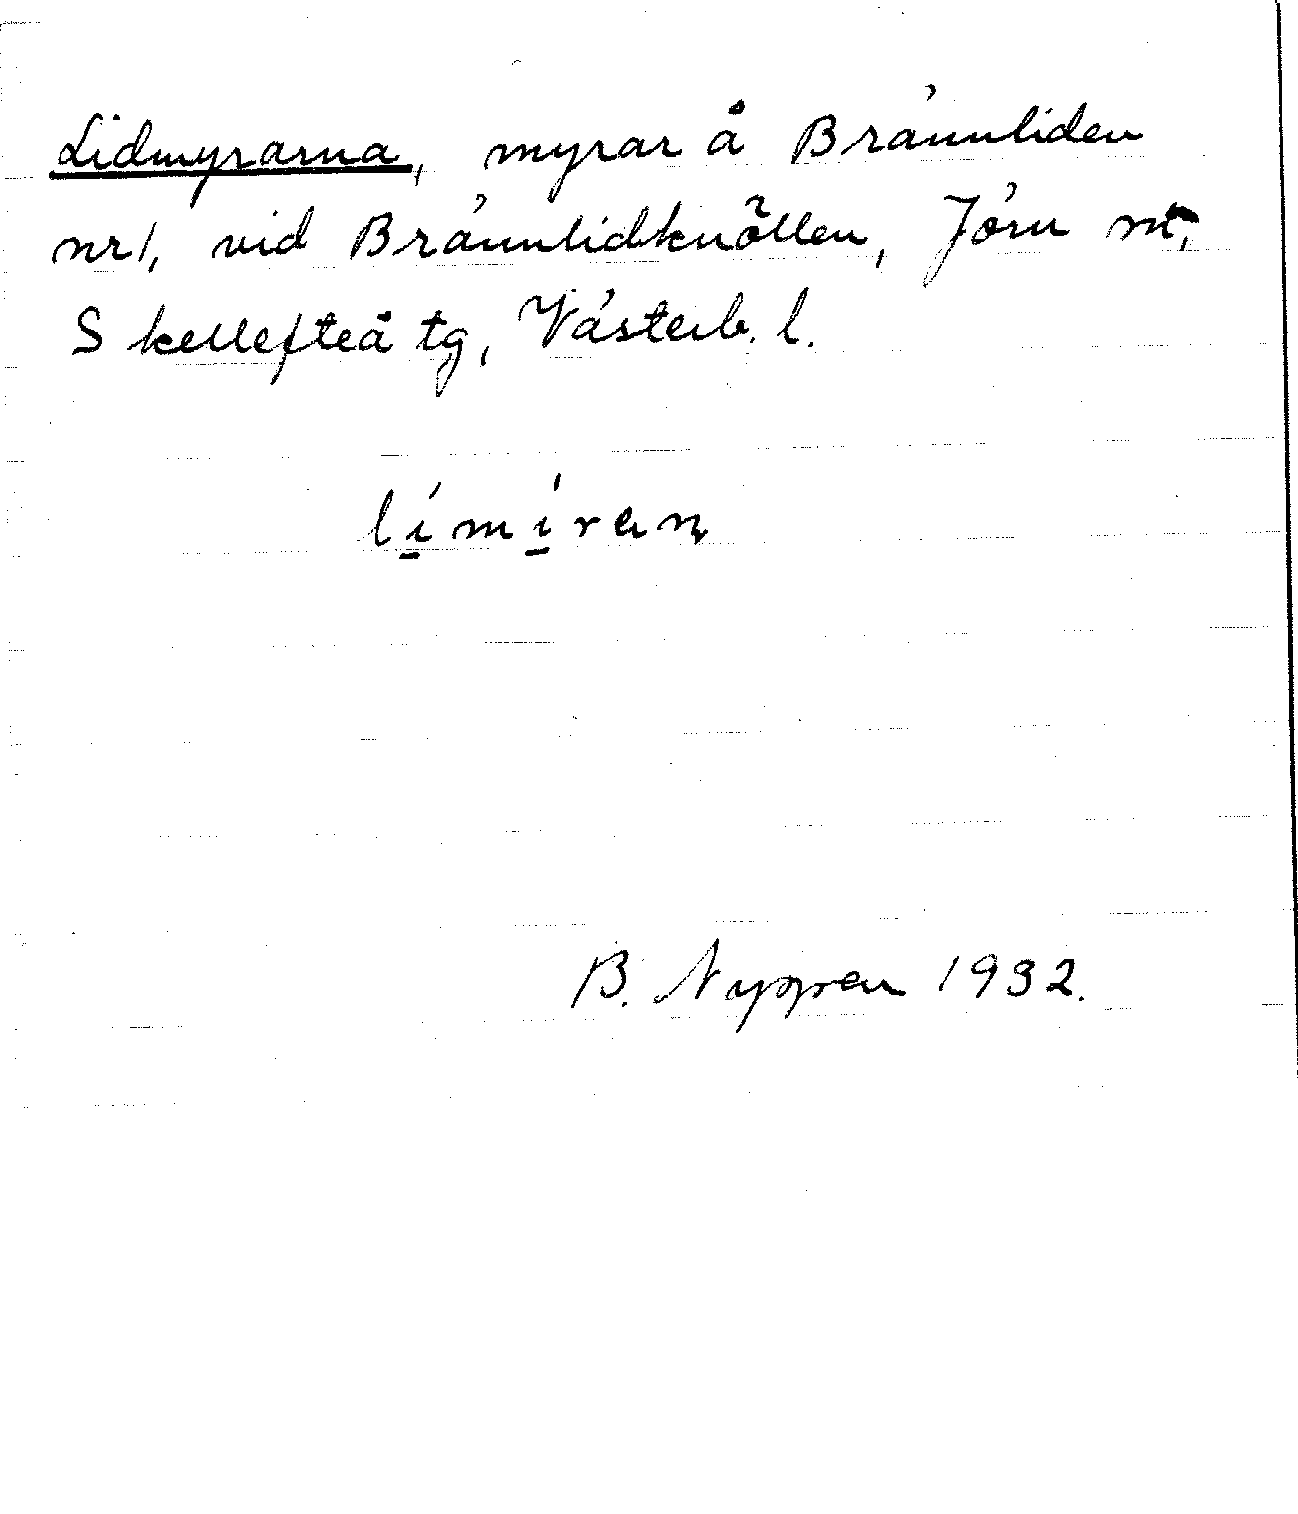 Lidmyrarna, myrar å Brännliden
nr 1, vid Brännlidknöllen, Jörn
Skellefteå tg, Västerb. l.
lí̲mí̲ran
B. Nygren 1932.